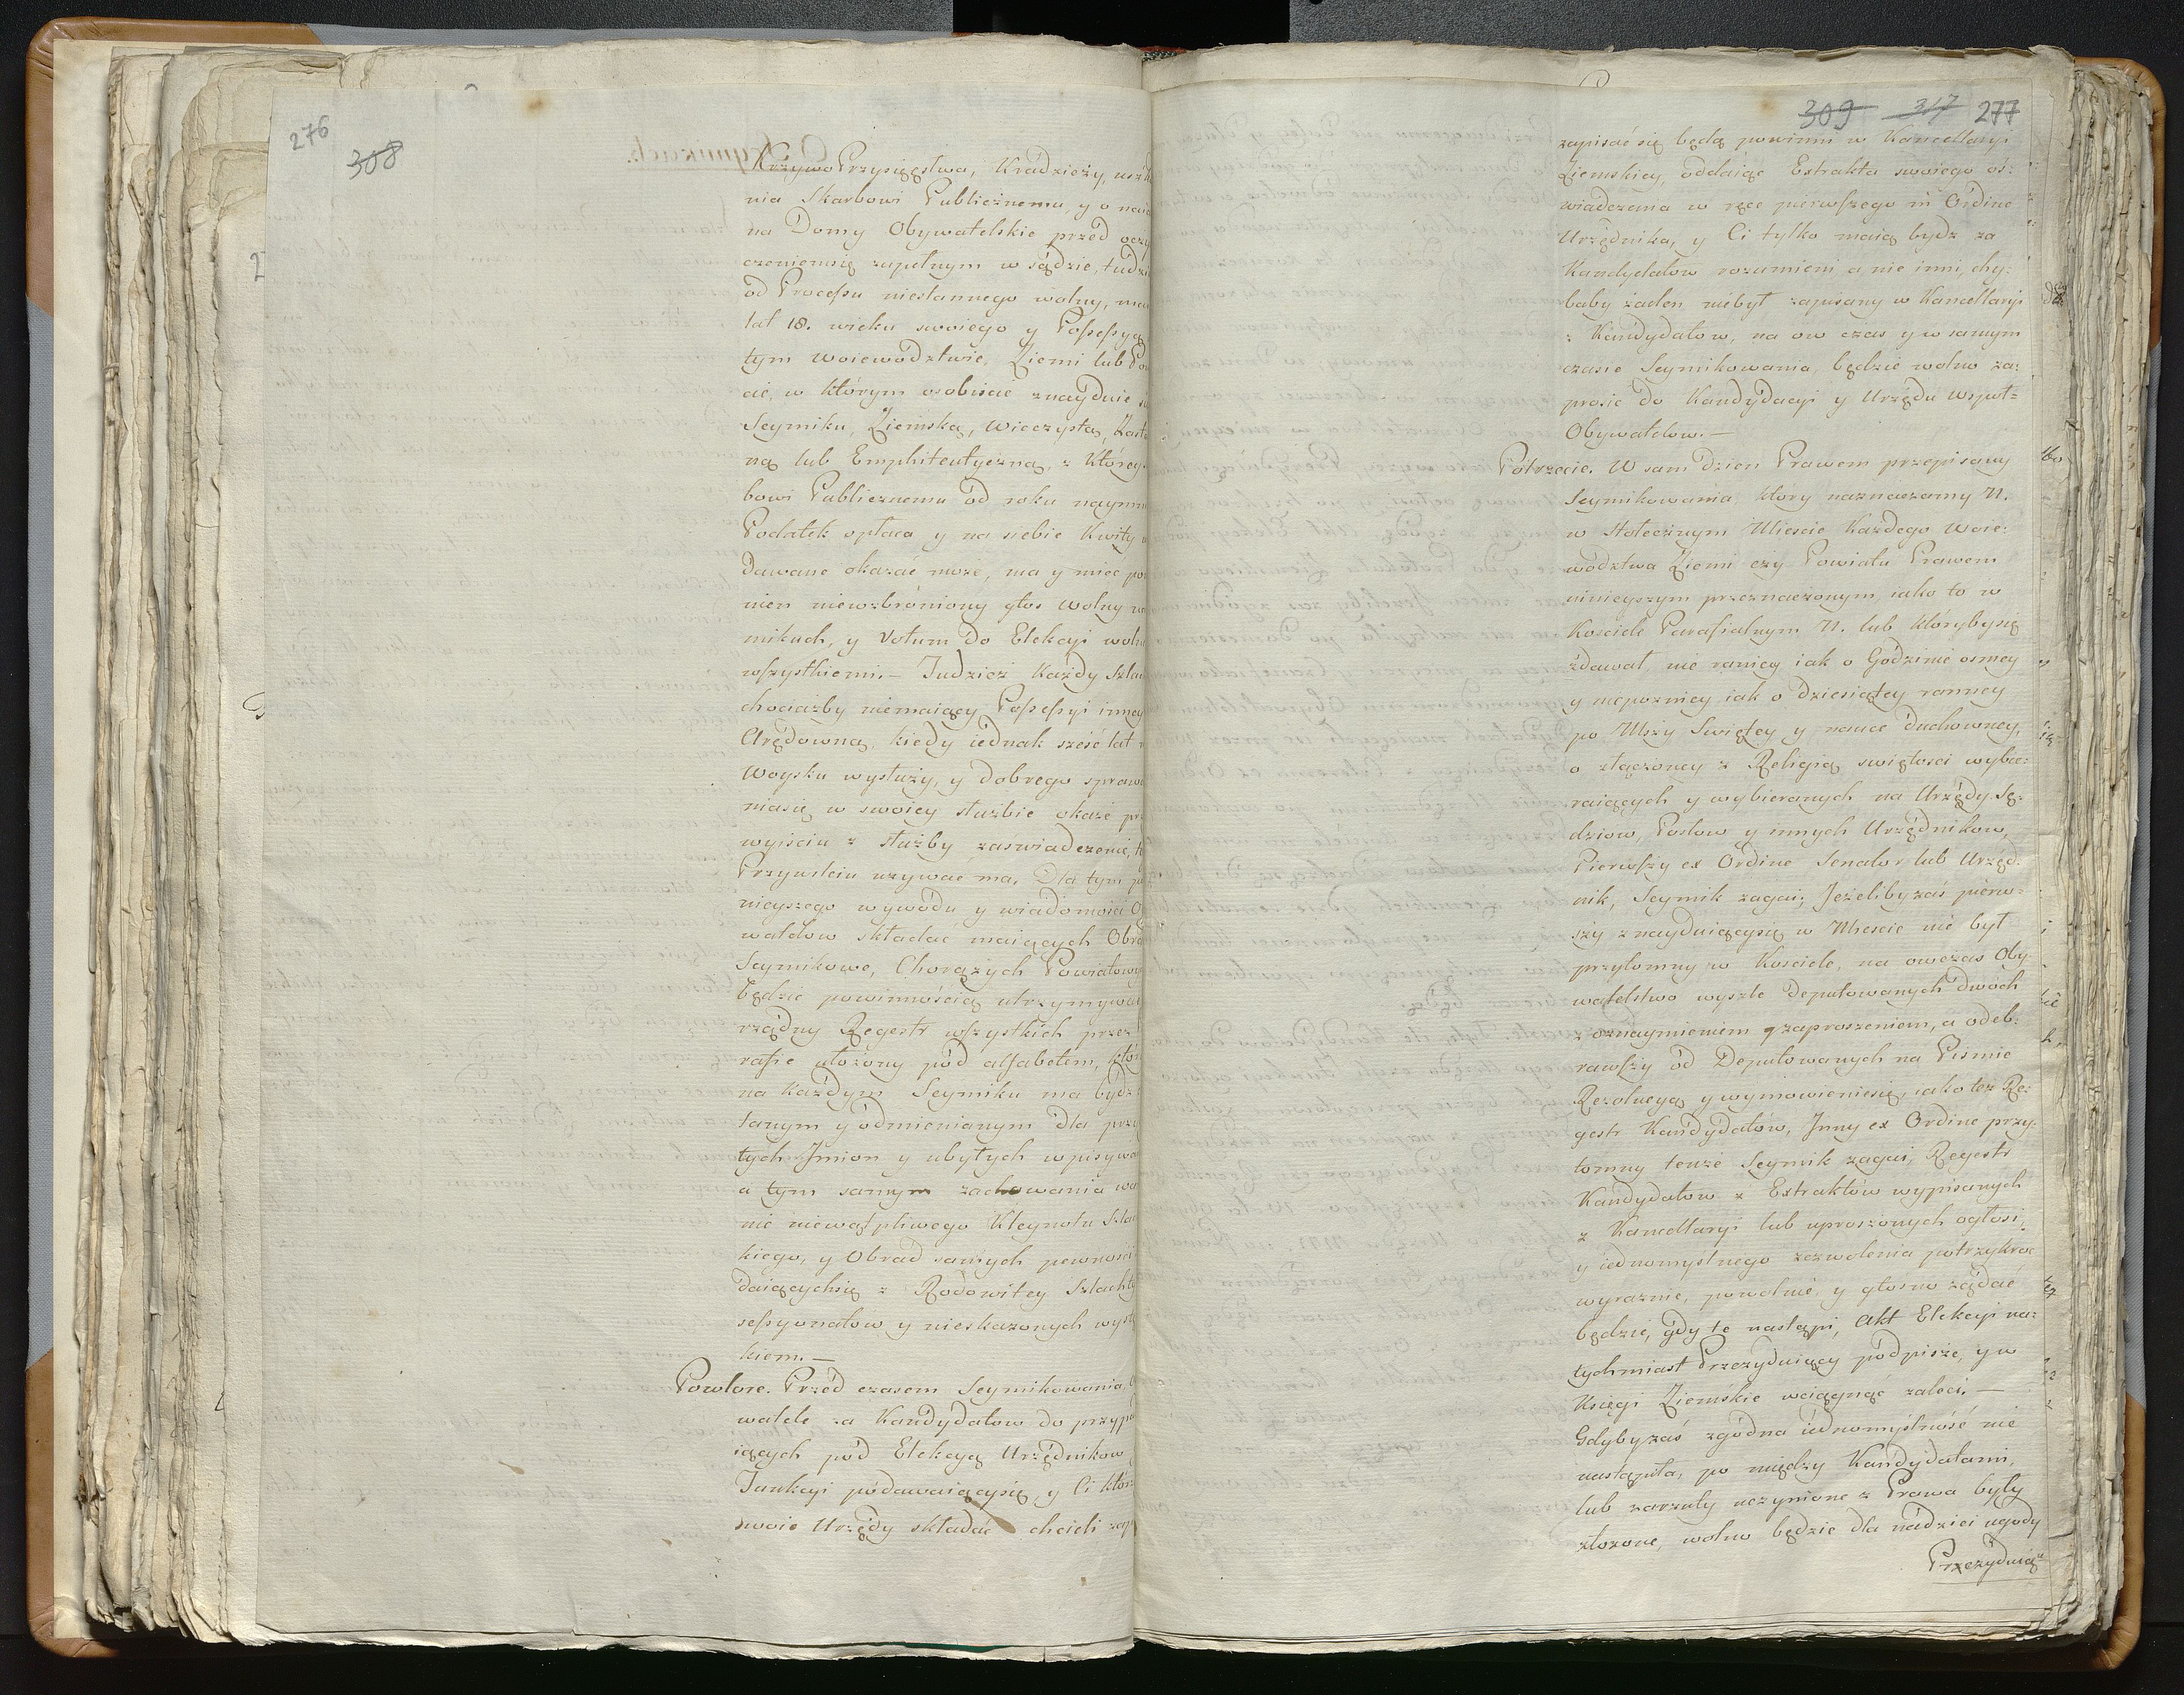 276
308
Krzywo Przysięgstwa, Kradzieży,
nia Skarbowi Publicznemu, y o
na Domy Obywatelskie przed
czeniemsię zupełnym w sądzie,
od Processu niestannego wolny,
lat 18. wieku swoiego y Possessyą
tym Woiewodztwie, Ziemi lub
cie, w którym osobiście znayduie
Seymiku, Ziemską, Wieczystą,
ną lub Emphiteutyczną, z Którey
bowi Publicznemu od roku
Podatek opłaca y na siebie Kwity
dawane okazać może, ma y mieć
nien niewzbroniony głos wolny
mikach, y Votum do Elekcyi
wszystkiemi. — Tudzież Każdy
chociażby niemaiący Possessyi inney
Arędowną, kiedy iednak sześć lat
Woysku wysłuży, y dobrego
niasię w swoiey służbie okaże
wyiściu z służby zaświadczenie,
Przywileiu używać ma. Dla tym
nieyszego wywodu y wiadomości
watelow składać maiących
Seymikowe, Chorążych
będzie powinnością
rządny Regestr wszystkich przez
rafie ułożony pod alfabetem,
na każdym Seymiku ma bydz
tanym y odmienianym dla
tych Imion y ubyłych
a tym samym zachowania
nie niewątpliwego Kleynotu
kiego, y Obrad samych pewności
daiącychsię z Rodowitey Szlachty
sessyonatow y nieskazonych
kiem. —
Powtore. Przed czasem Seymikowania
watele za Kandydatow do
iących pod Elekcyą Urzędnikow
Funkcyi podawaiącysię, y Ci
swoie Urzędy składać chcieli
309 317 277
zapisać się będą powinni w Kancellaryi
Ziemskiey, oddaiąc Extrakta swoiego oś:
wiadczenia w ręce pierwszego in Ordine
Urzędnika, y Ci tylko maią bydz za
Kandydatow rozumieni a nie inni, chy:
baby żaden niebył zapisany w Kancellaryi
z Kandydatow, na ow czas y w samym
czasie Seymikowania, będzie wolno za:
prosic do Kandydacyi y Urzędu wspoł=
Obywatelow. —
Potrzecie. W sam dzien Prawem przepisany
Seymikowania który naznaczamy N.
w Stołecznym Mieście Każdego Woie:
wodztwa Ziemi czy Powiatu Prawem
ninieyszym przeznaczonym, iako to w
Kościele Parafialnym N. lub którybysię
zdawał, nie raniey iak o Godzinie osmey
y niepozniey iak o dziesiątey ranney
po Mszy Swiętey y nauce duchowney,
o złączoney z Religią swiętości wybie:
raiących y wybieranych na Urzędy Sę:
dziow, Posłow y innych Urzędnikow,
Pierwszy ex Ordine Senator lub Urzęd:
nik, Seymik zagai; Jeżeliby zaś pierw:
szy znayduiącysię w Mieście nie był
przytomny w Kościele, na owczas Oby:
watelstwo wyszle Deputowanych dwóch
z oznaymieniem y zaproszeniem, a odeb:
rawszy od Deputowanych na Piśmie
Rezolucyą y wymowieniesię, iako też Re:
gestr Kandydatów, Inny ex Ordine przy:
tomny tenże Seymik zagai, Regestr
Kandydatow z Extraktów wypisanych
z Kancellaryi lub uproszonych ogłosi,
y iednomyślnego zezwolenia potrzykroć
wyraznie, powolnie y głosno żądać
będzie, gdy te nastąpi, Akt Elekcyi na:
tychmiast Prezyduiący podpisze, y w
Księgi Ziemskie wciągnąć zaleci. —
Gdybyzaś zgodna iednomyślność nie
nastąpiła, po między Kandydatami,
lub zarzuty uczynione z Prawa były
złozone, wolno będzie dla nadziei ugody
Prezyduią: